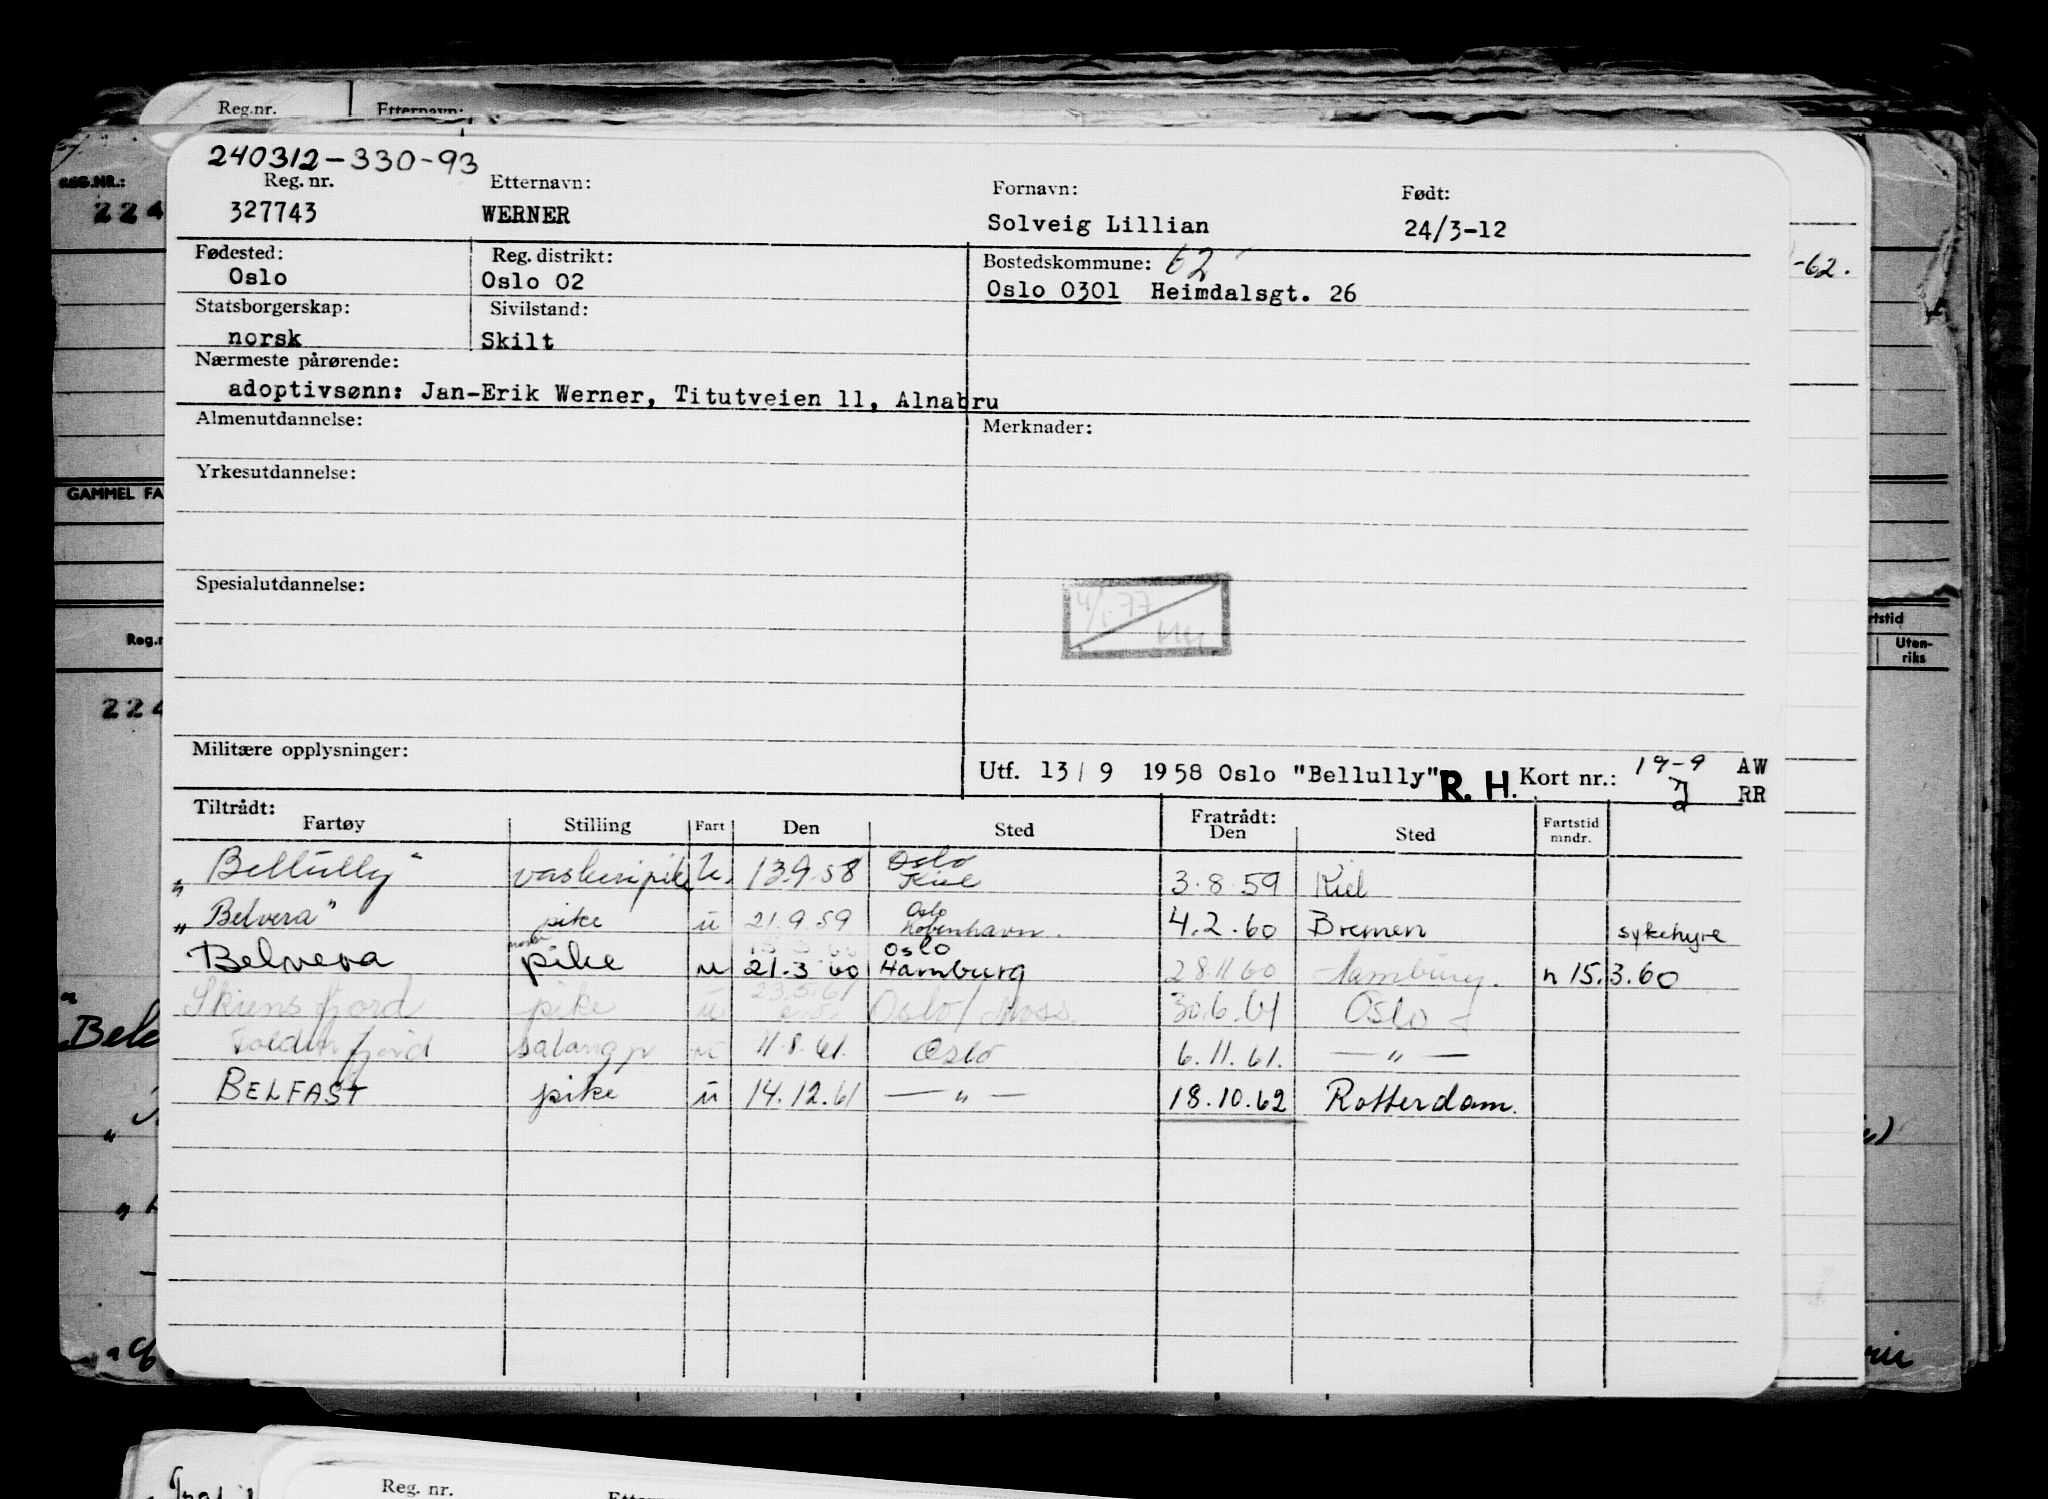 Reg.nr.
Etternavn:
240312-330-93
Reg. nr. Etternavn: Fornavn: Født:
327743 WERNER Solveig Lillian 24/3-12
Fødested: Reg. distrikt: Bostedskommune: 62
Oslo Oslo 02 Oslo 0301 Heimdalsgt. 26
Statsborgerskap: Sivilstand:
norsk Skilt
Nærmeste pårørende:
adoptivsønn: Jan-Erik Werner, Titutveien 11, Alnabru
Almenutdannelse: Merknader:
Yrkesutdannelse:
Spesialutdannelse:
Militære opplysninger:
Utf. 13/9 1958 Oslo "Bellully" R. H. Kort nr.: 19-9 AW
RR
Tiltrådt: Fratrådt:
Fartøy Stilling Fart Den Sted Den Sted Fartstid mndr.
Oslo
„Bellully" vaskeripike u. 13.9.58 Kiel 3.8.59 Kiel
Oslo
„Belvera" pike u 21.9.59 København. 4.2.60 Bremen sykehyre
Oslo
Belvera pike u 21.3 60 Hamburg 28.11.60 Hamburg. n 15.3.60
23.5.61
Skiensfjord pike u Oslo/Moss. 30.6.61 Oslo
fjord salongp 11.8.61. Oslo 6.11.61. — " —
BELFAST pike u 14.12.61 — " — 18.10.62 Rotterdam.
REG.NR.:
224
GAMMEL FA
Reg.n
224
-62.
rtstid
Uten-
riks
Reg. nr.